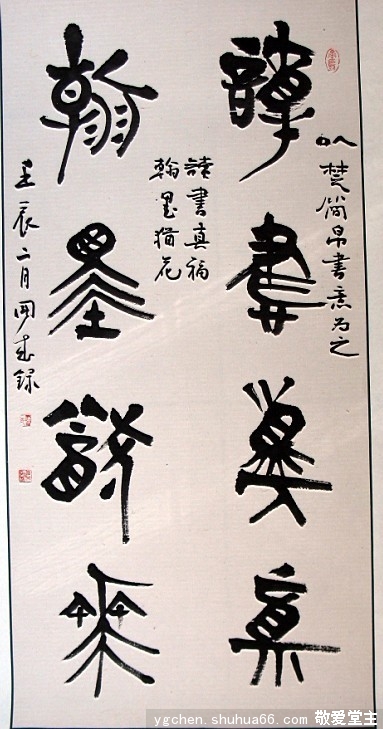 以楚簡帛書意为之
讀書真福
讀書真福
翰墨猶花
翰墨猶花
壬辰二月
ygchen.shuhua66.com 敬爱堂主